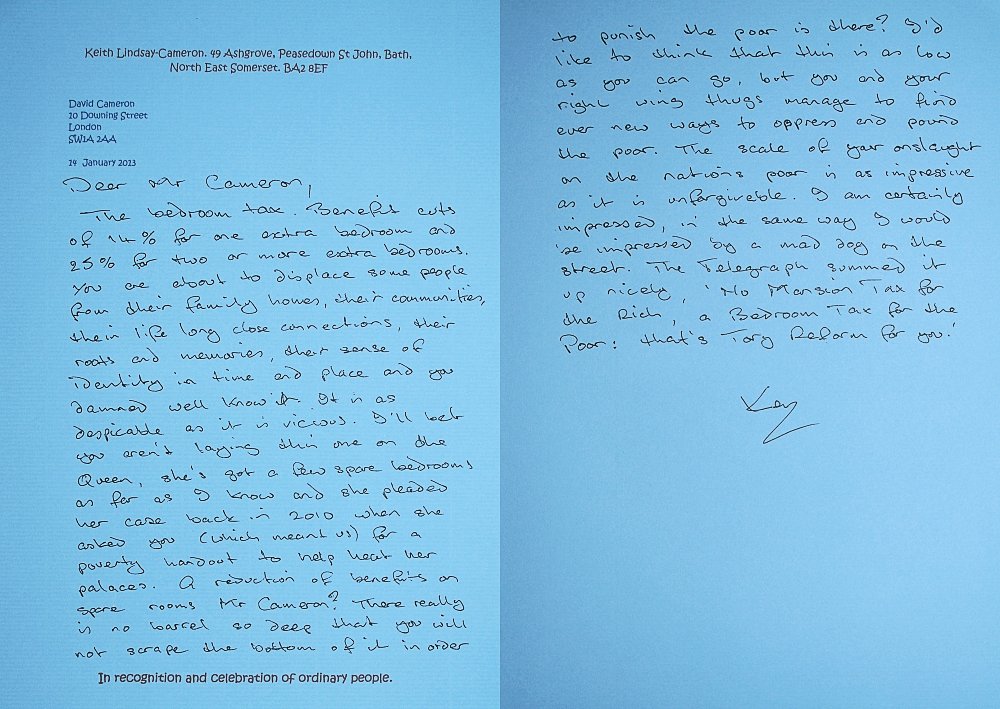 Keith Lindsay-Cameron. 49 Ashgrove, Peasedown St John, Bath,
North East Somerset. BA2 8EF
David Cameron
10 Downing Street
London
SW1A 2AA
14 January 2013
Dear Mr Cameron,
The bedroom tax. Benefit cuts
of 14% for one extra bedroom and
25% for two or more extra bedrooms.
You are about to displace some people
from their family homes, their communities,
their life long close connections, their
roots and memories, their sense of
identity in time and place and you
damned well know it. It is as
despicable as it is vicious. I'll bet
you aren't laying this one on the
Queen, she's got a few spare bedrooms
as far as I know and she pleaded
her case back in 2010 when she
asked you (which meant us) for a
poverty handout to help heat her
palaces. A reduction of benefits on
spare rooms Mr Cameron? There really
is no barrel so deep that you will
not scrape the bottom of it in order
In recognition and celebration of ordinary people.
to punish the poor is there? I'd
like to think that this is as low
as you can go, but you and your
right wing thugs manage to find
ever new ways to oppress and pound
the poor. The scale of your onslaught
on the nation's poor is as impressive
as it is unforgivable. I am certainly
impressed, in the same way I would
be impressed by a mad dog on the
street. The Telegraph summed it
up nicely, 'No Mansion Tax for
the Rich, a Bedroom Tax for the
Poor: that's Tory Reform for you.'